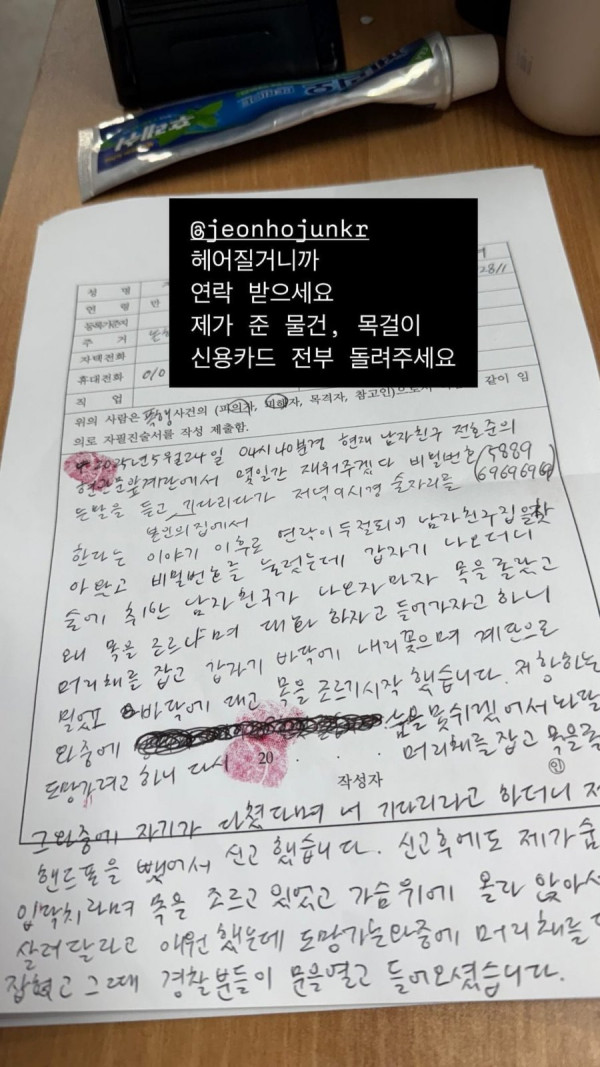 @jeonhojunkr
헤어질거니까
연락 받으세요
제가 준 물건, 목걸이
신용카드 전부 돌려주세요
성 명
연 령 만
등록기준지
주 거
자택전화
휴대전화 010
직 업
위의 사람은 폭행사건의 (피의자, 피해자, 목격자, 참고인)으로서 같이 임
의로 자필진술서를 작성 제출함.
2025년 5월 24일 04시 40분경 현재 남자친구 전호준의
현관문앞계단에서 몇일간 재워주겠다 비밀번호 (5889
는말을 듣고 기다리다가 저녁 9시경 술자리를 69696969)
본인의집에서
한다는 이야기 이후로 연락이 두절되어 남자친구집을 찾
아 왔고 비밀번호를 눌렀는데 갑자기 나오더니
술에 취한 남자친구가 나오자마자 목을 졸랐고
왜 목을 조르냐며 대화 하자고 들어가자고 하니
머리채를 잡고 갑자기 바닥에 내리꽂으며 계단으로
밀었고 바닥에 대고 목을 조르기시작 했습니다. 저항하는
와중에 숨을 못쉬겠어서
도망가려고 하니 다시 머리채를 잡고 목을
20 . . .
작성자 ㊞
그와중에 자기가 다쳤다며 너 기다리라고 하더니
핸드폰을 뺏어서 신고 했습니다. 신고후에도 제가
입닥치라며 목을 조르고 있었고 가슴위에 올라 앉아서
살려달라고 애원 했는데 도망가는와중에 머리채를
잡혔고 그때 경찰분들이 문을열고 들어오셨습니다.